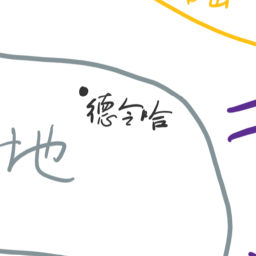 德令哈
地